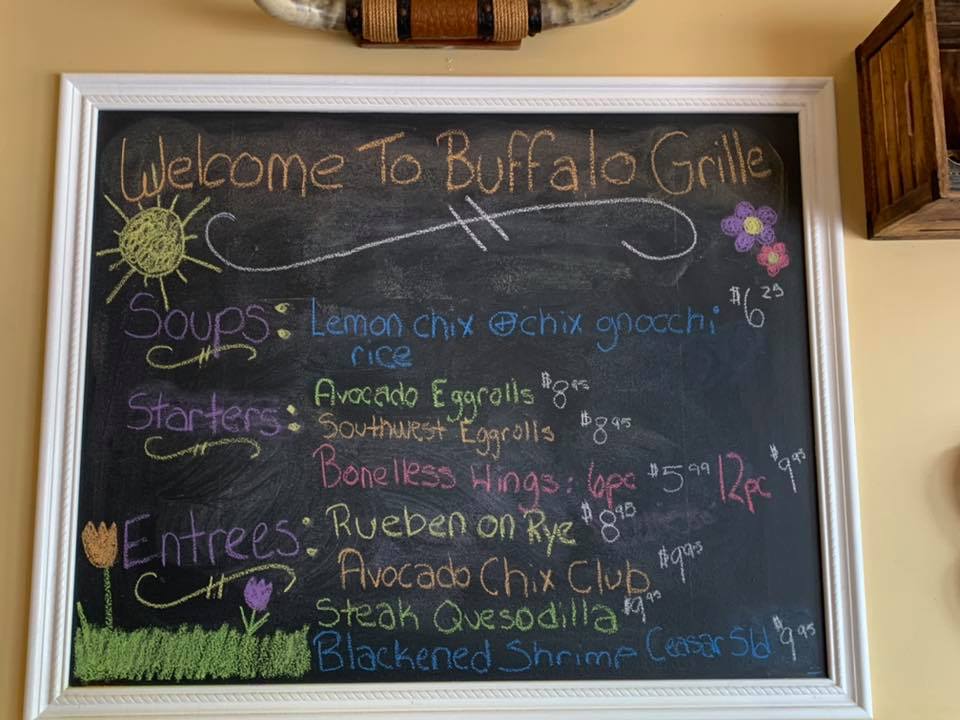 Welcome To Buffalo Grille
Soups: Lemon chix ⊕ chix gnocchi $6.29
rice
Starters: Avocado Eggrolls $8.95
Southwest Eggrolls $8.95
Boneless Wings: 6pc $5.99 12pc $9.95
Entrees: Rueben on Rye $8.95
Avocado Chix Club $9.95
Steak Quesodilla $9.95
Blackened Shrimp Ceasar Sld $9.95